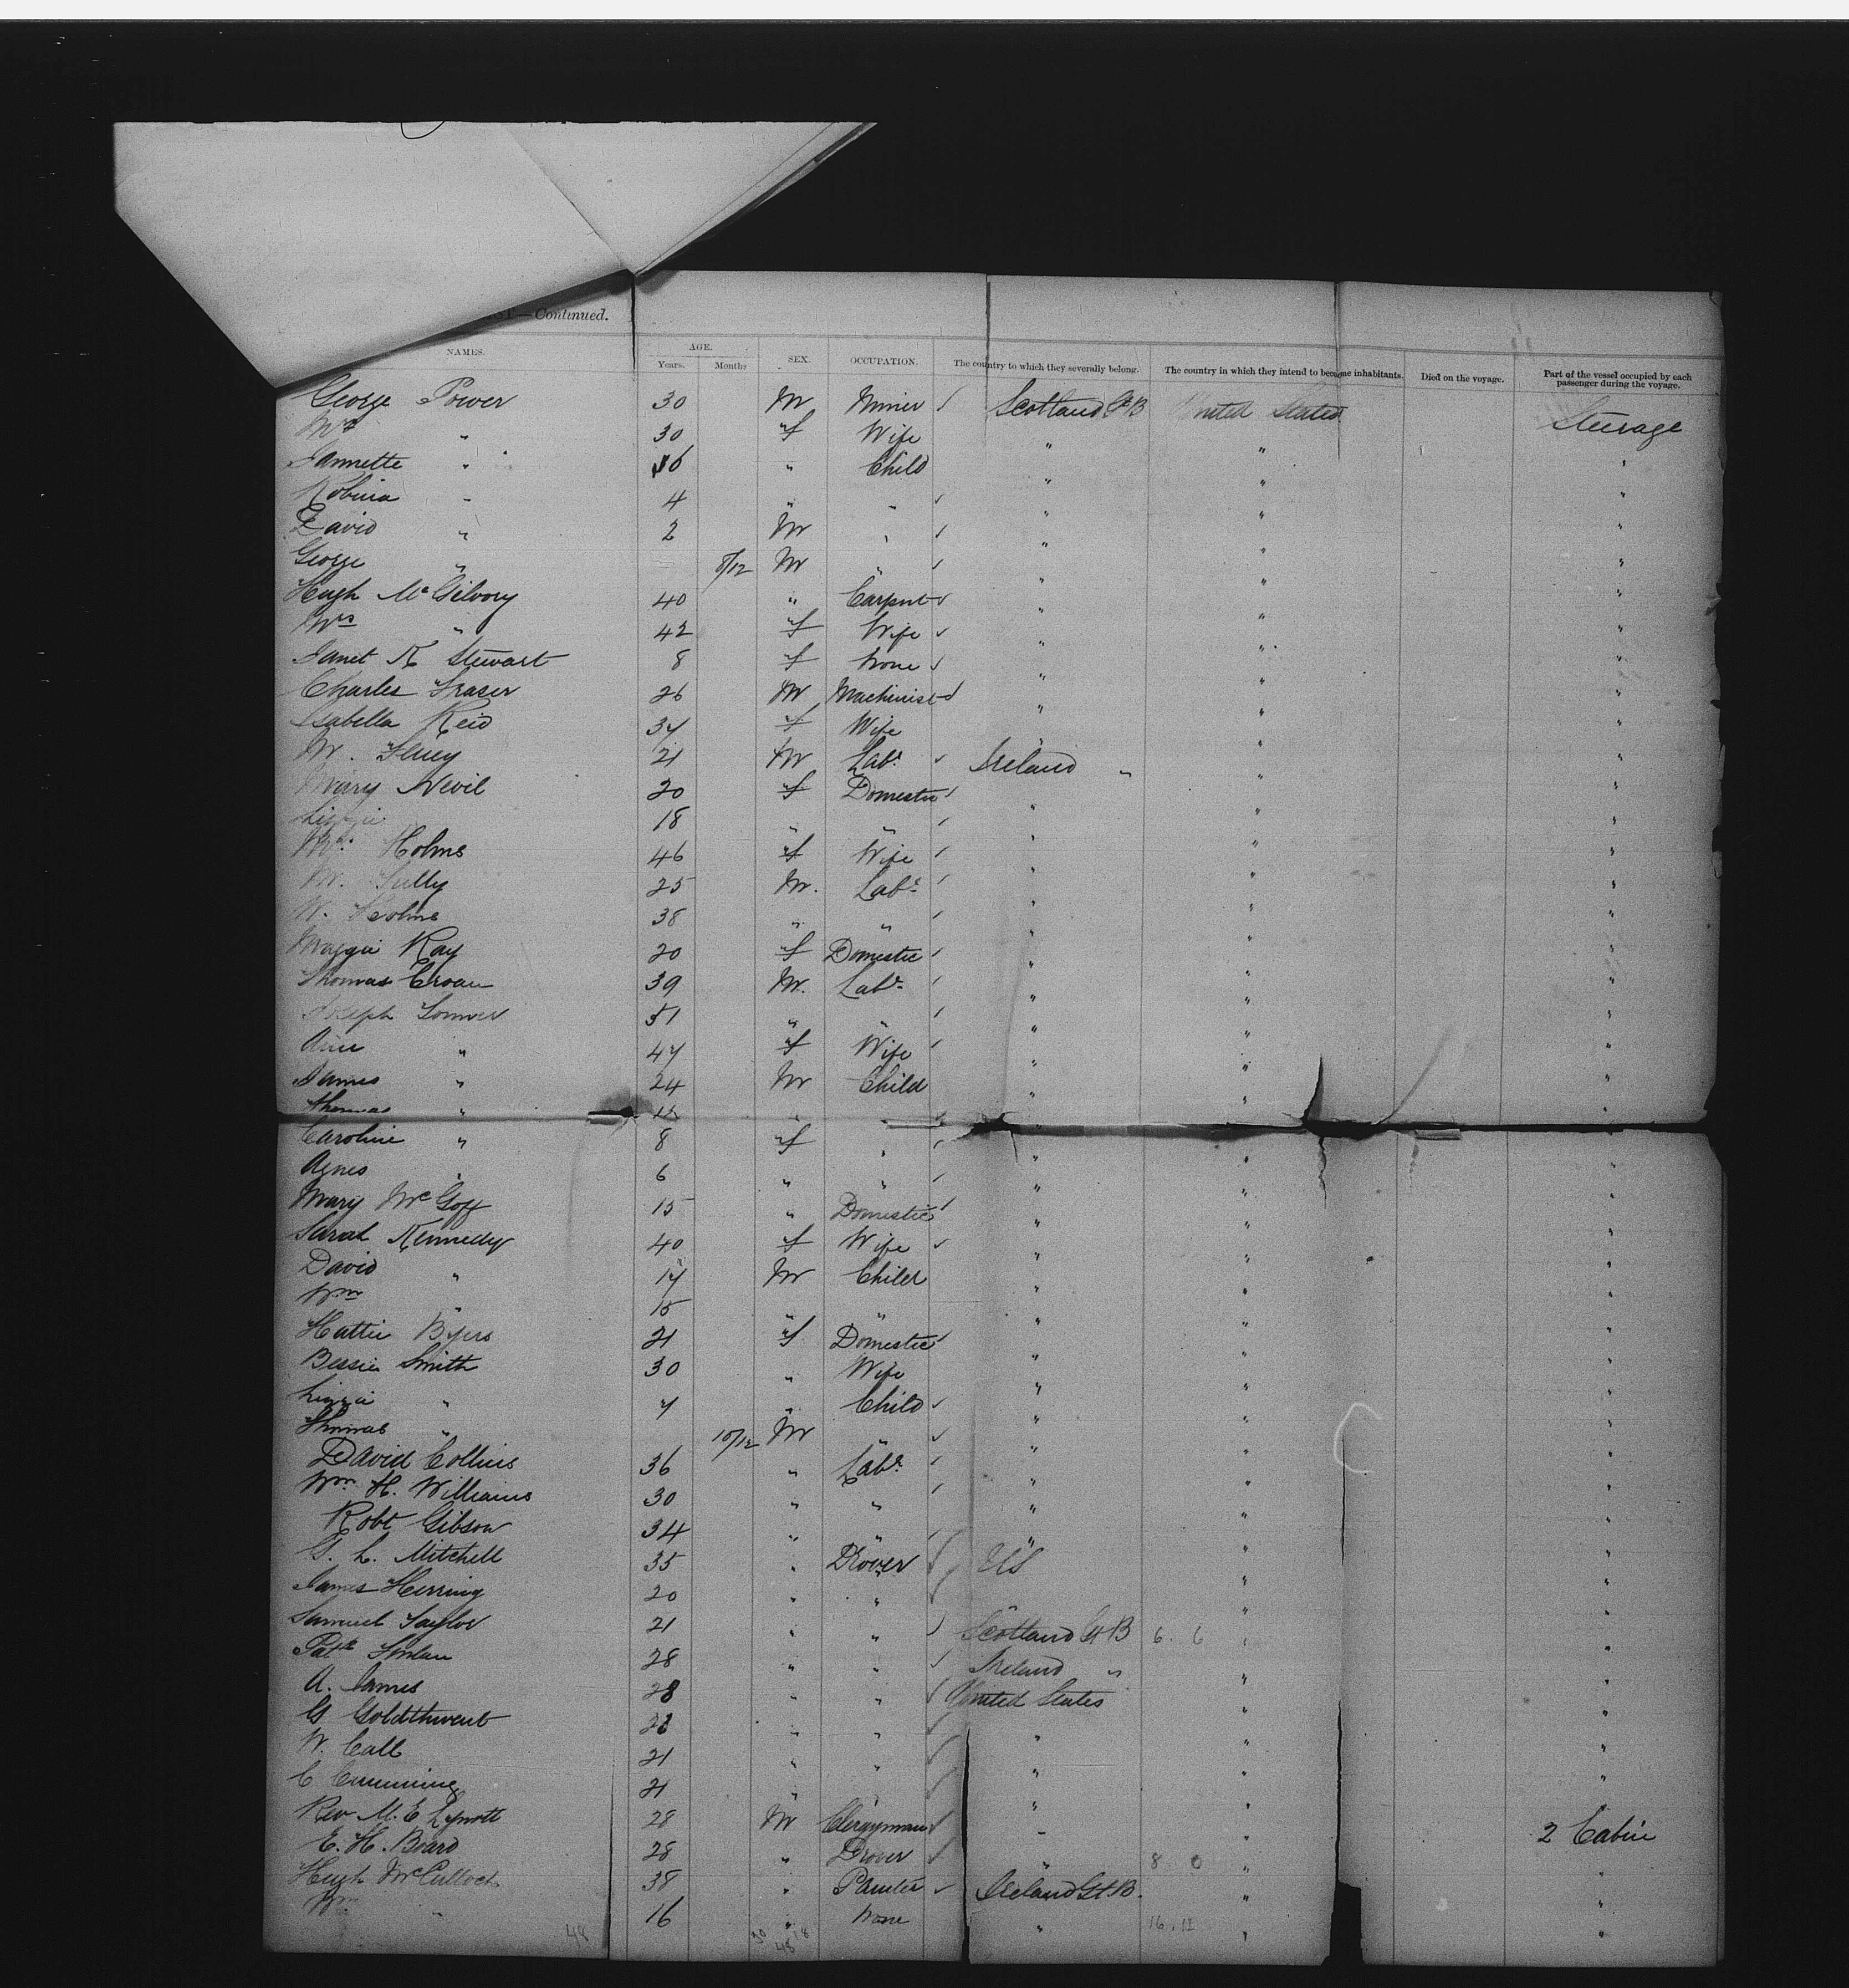 —Continued.
NAMES. AGE. Years. Months SEX. OCCUPATION. The country to which they severally belong. The country in which they intend to become inhabitants. Died on the voyage. Part of the vessel occupied by each passenger during the voyage.
George Power 30 M Minier ✓ Scotland Gt B United States Steerage
Mrs " 30 "f Wife " " "
Jannette " 16 " Child " " "
Robina " 4 " " ✓ " " "
David " 2 M " ✓ " " "
George " 8/12 M " ✓ " " "
Hugh McGilvory 40 " Carpnt ✓ " " "
Mrs " 42 f Wife ✓ " " "
Janet K Stewart 8 f None ✓ " " "
Charles Fraser 26 M Machinist ✓ " " "
Isabella Reid 37 f Wife " " "
M. 21 M Labr ✓ Ireland " " "
Mary Nevil 20 f Domestic ✓ " " "
Lizzie 18 " " ✓ " " "
Mrs Holms 46 f Wife ✓ " " "
M. 25 M. Labr ✓ " " "
W. Holms 38 " " ✓ " " "
Maggie Kay 20 f Domestic ✓ " " "
Thomas Croan 39 M. Labr ✓ " " "
Joseph 51 " " ✓ " " "
Ann " 47 f Wife ✓ " " "
James " 24 M Child " " "
Thomas " " " " "
Caroline " 8 f " ✓ " " "
Agnes " 6 " " ✓ " " "
Mary McGoff 15 " Domestic ✓ " " "
Sarah Kennedy 40 f Wife ✓ " " "
David " 17 M Child " " "
Wm " 15 " " " " "
Hattie Byers 21 f Domestic ✓ " " "
Bessie Smith 30 " Wife " " "
Lizzie " 7 " Child ✓ " " "
Thomas " 10/12 M " ✓ " " "
David Collins 36 " Labr ✓ " " "
Wm H. Williams 30 " " ✓ " " "
Robt Gibson 34 " " ✓ " " "
G. L. Mitchell 35 " Drover ✓ US " "
James Herring 20 " " ✓ " " "
Samuel Taylor 21 " " ✓ Scotland Gt B 6. 6 " "
Patk 28 " " ✓ Ireland " " "
A. James 28 " " ✓ United States " "
G Goldthweat " " ✓ " " "
W. Call 21 " " ✓ " " "
C Cumming 21 " " ✓ " " "
Rev M. E Lynott 28 M Clergyman ✓ " " 2 Cabin
E. H. Board 28 " Drover ✓ " 8 0 " "
Hugh McCulloch 38 " Painter ✓ Ireland Gt. B. " "
Wm " 16 " None " 16.12 " "
48 30 18
48